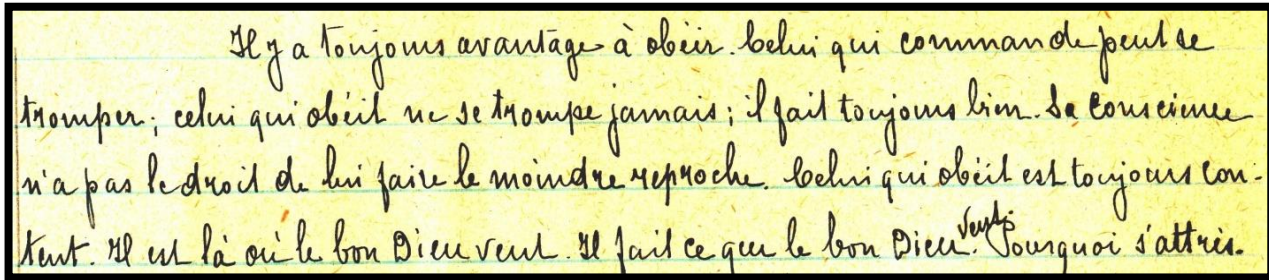 Il y a toujours avantage à obéir. Celui qui commande peut se
tromper ; celui qui obéit ne se trompe jamais ; il fait toujours bien. Sa conscience
n'a pas le droit de lui faire le moindre reproche. Celui qui obéit est toujours con-
tent. Il est là où le bon Dieu veut. Il fait ce que le bon Dieu veut. Pourquoi s'attris-